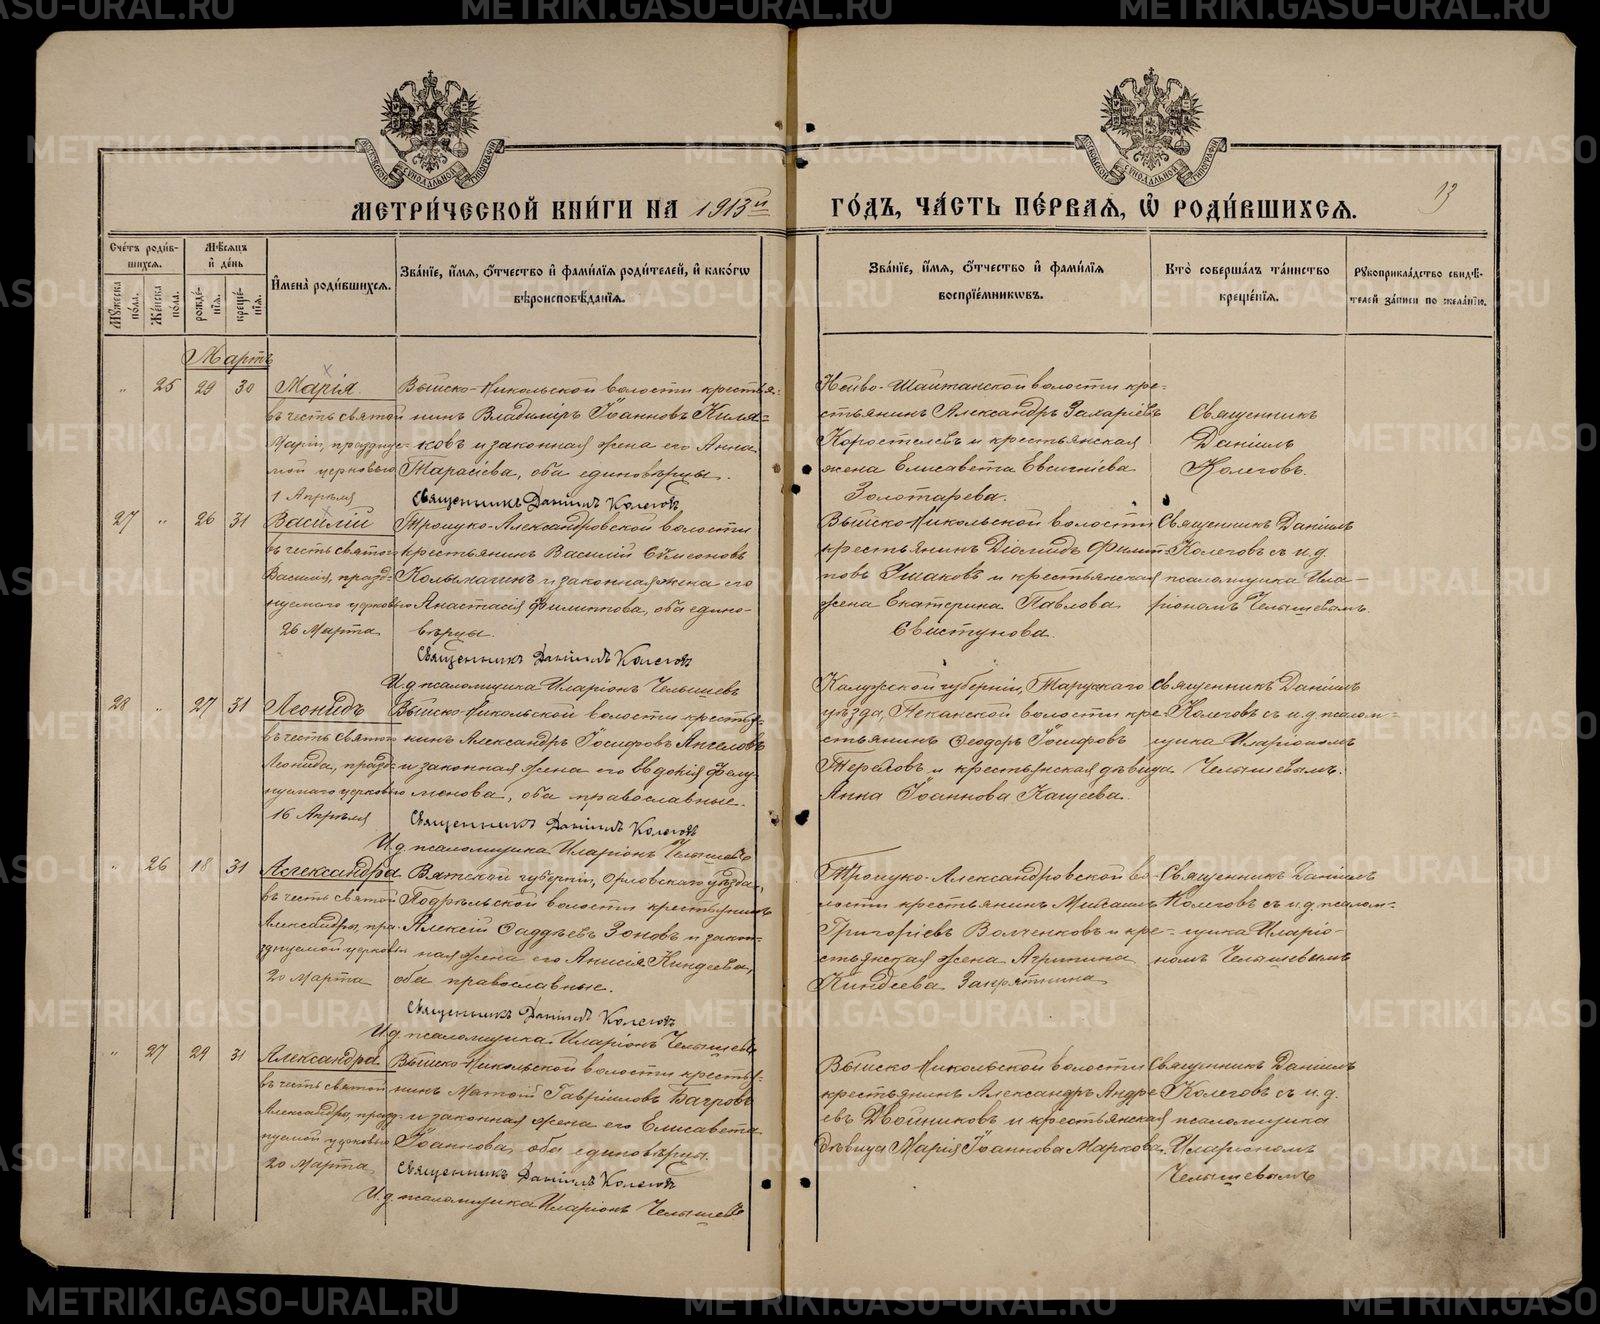 МЕТРИ́ЧЕСКОЙ КНИ́ГИ НА 1913й ГО́ДЪ, ЧА́СТЬ ПЕ́РВАЯ, Ѿ РОДИ́ВШИХСЯ.
13
Сче́тъ роди́в-
шихся.
Му́жеска по́ла.
Же́нска по́ла.
Мѣ́сяцъ и де́нь
рожде́-
нія.
креще́-
нія.
Имена̀ роди́вшихся.
Зва́ніе, и́мя, о́тчество и фами́лія роди́телей, и како́гѡ
вѣроисповѣ́данія.
Зва́ніе, и́мя, о́тчество и фами́лія
воспріе́мниковъ.
Кто̀ соверша́лъ та́инство
креще́нія.
Рукоприкла́дство свидѣ́-
телей за́писи по жела́нію.
Мартъ
" 25 29 30
Марія
въ честь святой
Маріи, празднуе-
мой церковью
1 Апрѣля
Выйско-Никольской волости крестья-
нинъ Владиміръ Іоанновъ Киля-
ковъ и законная жена его Анна
Тарасіева, оба единовѣрцы.
Священникъ Даніилъ Колеговъ
Нейво-Шайтанской волости кре-
стьянинъ Александръ Захаріевъ
Коростелевъ и крестьянская
жена Елисавета Евсигніева
Золотарева.
Священникъ
Даніилъ
Колеговъ.
27 " 26 31
Василій
въ честь святого
Василія, празд-
нуемаго церковью
26 Марта
Троицко-Александровской волости
крестьянинъ Василій Сѵмеоновъ
Колмагинъ и законная жена его
Анастасія Филиппова, оба едино-
вѣрцы.
Священникъ Даніилъ Колеговъ
И.д. псаломщика Иларіонъ Челышевъ
Выйско-Никольской волости
крестьянинъ Діомидъ Филип-
повъ Ушаковъ и крестьянская
жена Екатерина Павлова
Свистунова.
Священникъ Даніилъ
Колеговъ съ и.д.
псаломщика Ила-
ріономъ Челышевымъ.
28 " 27 31
Леонидъ
въ честь святого
Леонида, празд-
нуемаго церковью
16 Апрѣля
Выйско-Никольской волости крестья-
нинъ Александръ Іосифовъ Ангеловъ
и законная жена его Евдокія
оба православные.
Священникъ Даніилъ Колеговъ
И.д. псаломщика Иларіонъ Челышевъ
Калужской губерніи, Тарускаго
уѣзда, волости кре-
стьянинъ Ѳеодоръ Іосифовъ
и крестьянская дѣвица
Анна Іоаннова Кащеева.
Священникъ Даніилъ
Колеговъ съ и.д. псалом-
щика Иларіономъ
Челышевымъ.
" 26 18 31
Александра
въ честь святой
Александры, пра-
зднуемой церковью
20 Марта
Вятской губерніи, Орловскаго уѣзда,
Подрѣльской волости крестьянинъ
Алексій Ѳаддѣевъ Зоновъ и закон-
ная жена его Анисія Киндеева,
оба православные.
Священникъ Даніилъ Колеговъ
И.д. псаломщика Иларіонъ Челышевъ
Троицко-Александровской во-
лости крестьянинъ Михаилъ
Григоріевъ Волченковъ и кре-
стьянская жена Агрипина
Киндеева Закрятина
Священникъ Даніилъ
Колеговъ съ и.д. псалом-
щика Иларіо-
номъ Челышевымъ
" 27 29 31
Александра
въ честь святой
Александры, празд-
нуемой церковью
20 Марта
Выйско-Никольской волости крестья-
нинъ Матѳій Гавріиловъ Багровъ
и законная жена его Елисавета
Іоаннова, оба единовѣрцы.
Священникъ Даніилъ Колеговъ
И.д. псаломщика Иларіонъ Челышевъ
Выйско-Никольской волости
крестьянинъ Александръ Андре-
евъ Двойниковъ и крестьянская
дѣвица Марія Іоаннова Маркова.
Священникъ Даніилъ
Колеговъ съ и.д.
псаломщика
Иларіономъ
Челышевымъ
METRIKI.GASO-URAL.RU